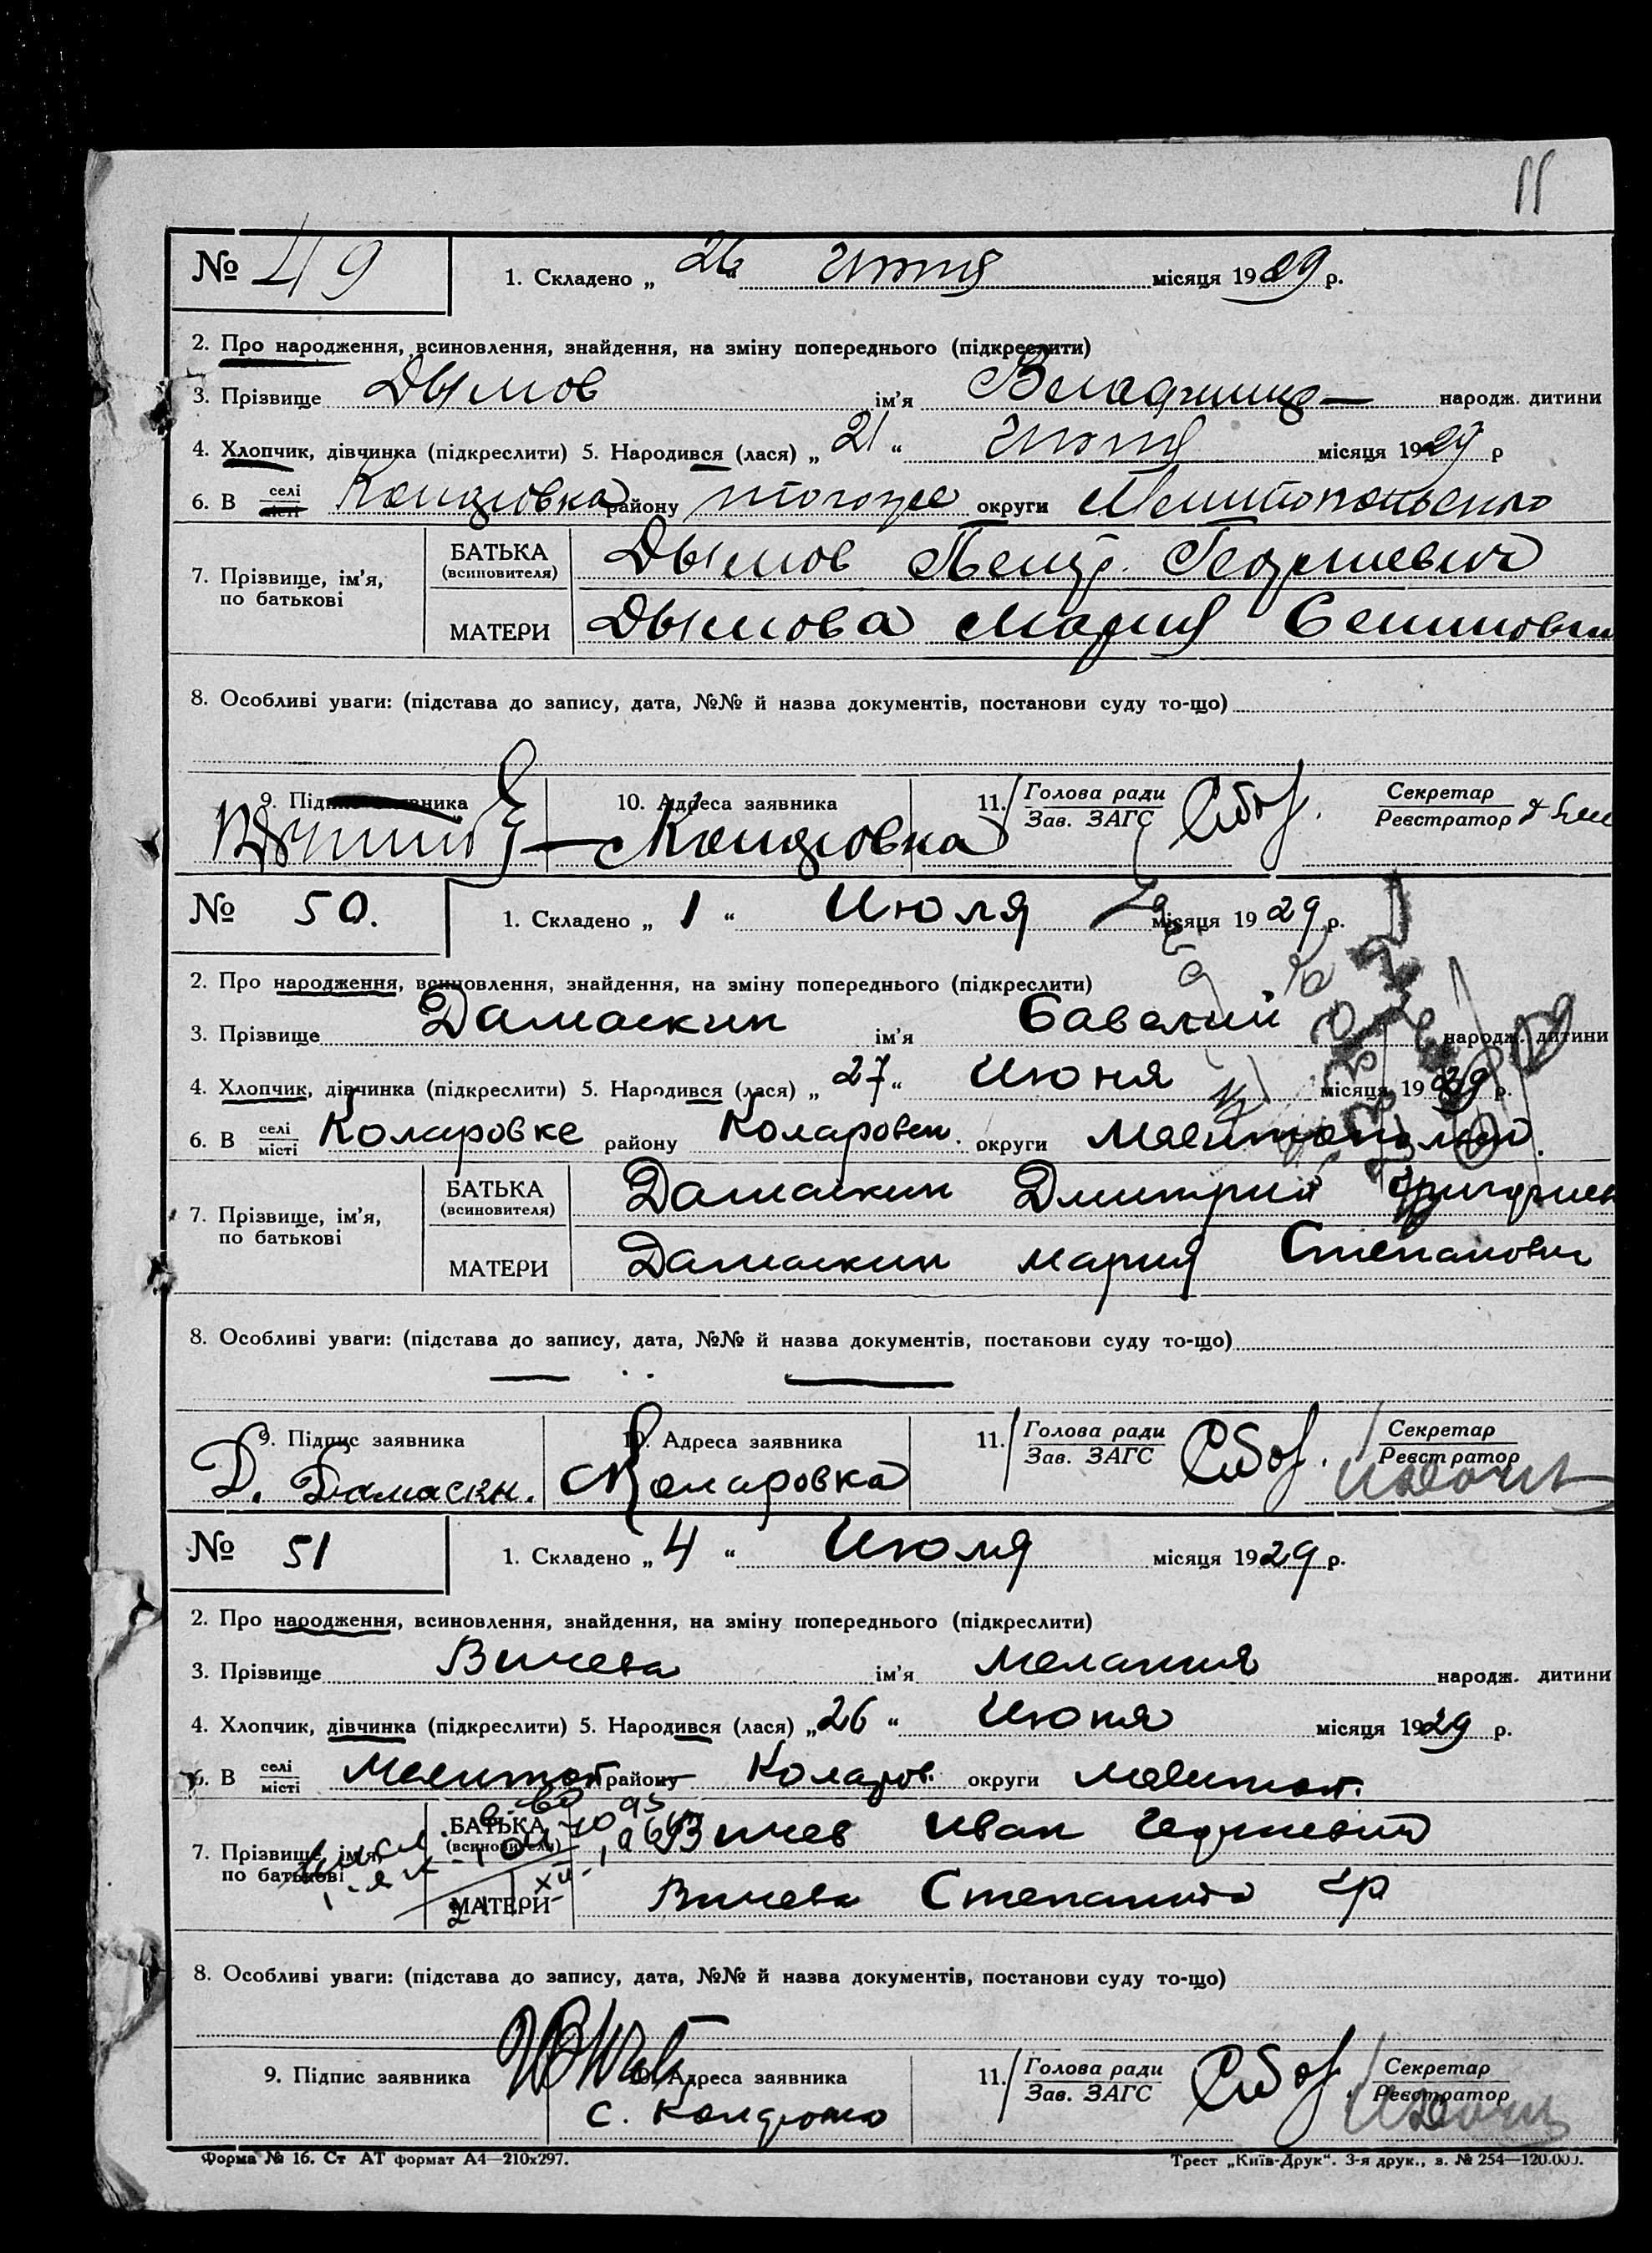 11
№ 49 1. Складено „ 26 “ Июня місяця 1929 р.
2. Про народження, всиновлення, знайдення, на зміну попереднього (підкреслити)
3. Прізвище Дымов ім'я Владимир народж. дитини
4. Хлопчик, дівчинка (підкреслити) 5. Народився (лася) „ 21 “ Июня місяця 1929 р
6. В селі місті району округи
7. Прізвище, ім'я, по батькові БАТЬКА (всиновителя) Дымов Петр Георгиевич
МАТЕРИ Дымова Мария
8. Особливі уваги: (підстава до запису, дата, №№ й назва документів, постанови суду то-що)
9. Підпис заявника 10. Адреса заявника 11. Голова ради Зав. ЗАГС Секретар Реєстратор
№ 50. 1. Складено „ 1 “ Июля місяця 1929 р.
2. Про народження, всиновлення, знайдення, на зміну попереднього (підкреслити)
3. Прізвище Дамаскин ім'я Савелий народж. дитини
4. Хлопчик, дівчинка (підкреслити) 5. Народився (лася) „ 27 “ Июня місяця 1929 р.
6. В селі місті Коларовке району Коларовск. округи
7. Прізвище, ім'я, по батькові БАТЬКА (всиновителя) Дамаскин Дмитрий
МАТЕРИ Дамаскин Мария Степановн
8. Особливі уваги: (підстава до запису, дата, №№ й назва документів, постанови суду то-що)
9. Підпис заявника 10. Адреса заявника 11. Голова ради Зав. ЗАГС Секретар Реєстратор
Д. Дамаскн. Коларовка
№ 51 1. Складено „ 4 “ Июля місяця 1929 р.
2. Про народження, всиновлення, знайдення, на зміну попереднього (підкреслити)
3. Прізвище Вичева ім'я Мелания народж. дитини
4. Хлопчик, дівчинка (підкреслити) 5. Народився (лася) „ 26 “ Июня місяця 1929 р.
6. В селі місті Мелитоп району Коларов. округи Мелитоп.
7. Прізвище, ім'я, по батькові БАТЬКА (всиновителя) Вичев Иван
МАТЕРИ Вичева
8. Особливі уваги: (підстава до запису, дата, №№ й назва документів, постанови суду то-що)
9. Підпис заявника 10. Адреса заявника 11. Голова ради Зав. ЗАГС Секретар Реєстратор
Форма № 16. Ст АТ формат А4—210х297. Трест „Київ-Друк“. 3-я друк., з. № 254—120.000.